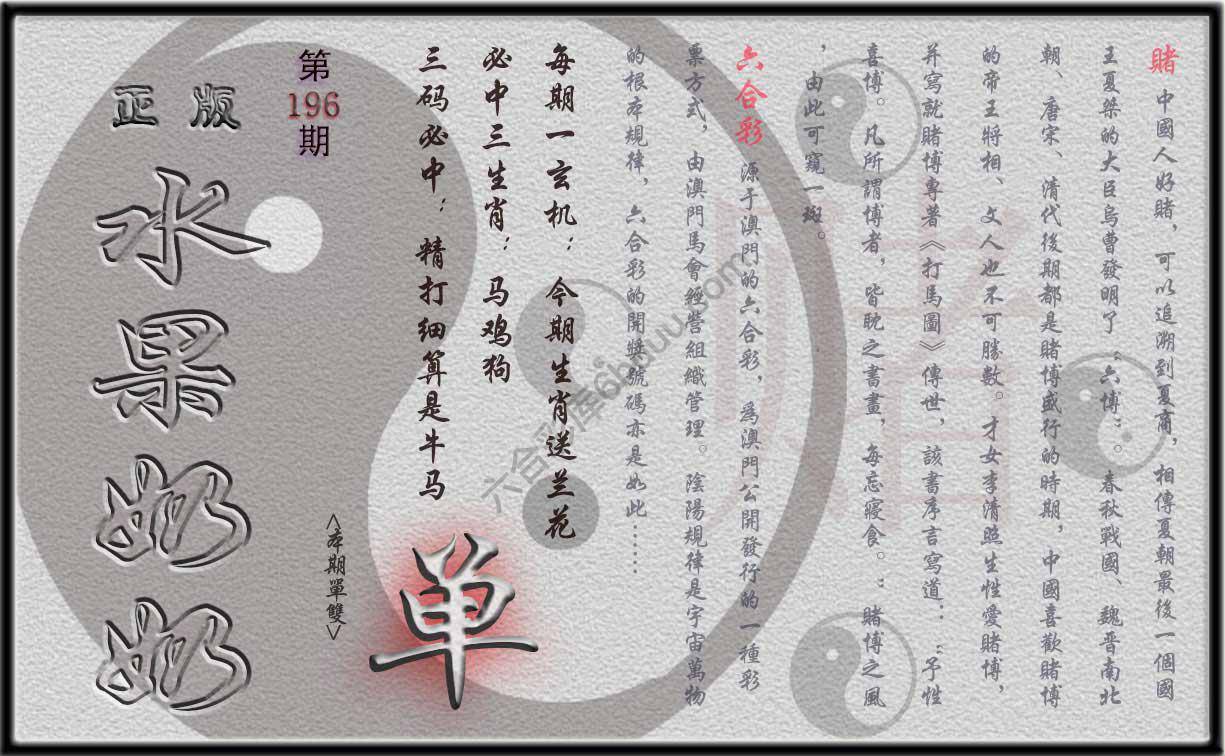 賭 中國人好賭，可以追溯到夏商，相傳夏朝最後一個國
王夏桀的大臣烏曹發明了“六博”。春秋戰國、魏晋南北
朝、唐宋、清代後期都是賭博盛行的時期，中國喜歡賭博
的帝王將相、文人也不可勝數。才女李清照生性愛賭博，
并寫就賭博專著《打馬圖》傳世，該書序言寫道：“予性
喜博。凡所謂博者，皆耽之晝晝，每忘寢食。：賭博之風
，由此可窺一斑。
六合彩 源于澳門的六合彩，為澳門公開發行的一種彩
票方式，由澳門馬會經營組織管理。陰陽規律是宇宙萬物
的根本規律，六合彩的開獎號碼亦是如此……
每期一玄机：今期生肖送兰花
必中三生肖：马鸡狗
三码必中：精打细算是牛马
单
<本期單雙>
第
196
期
正版
水果奶奶
賭
六合彩库6hduu.com